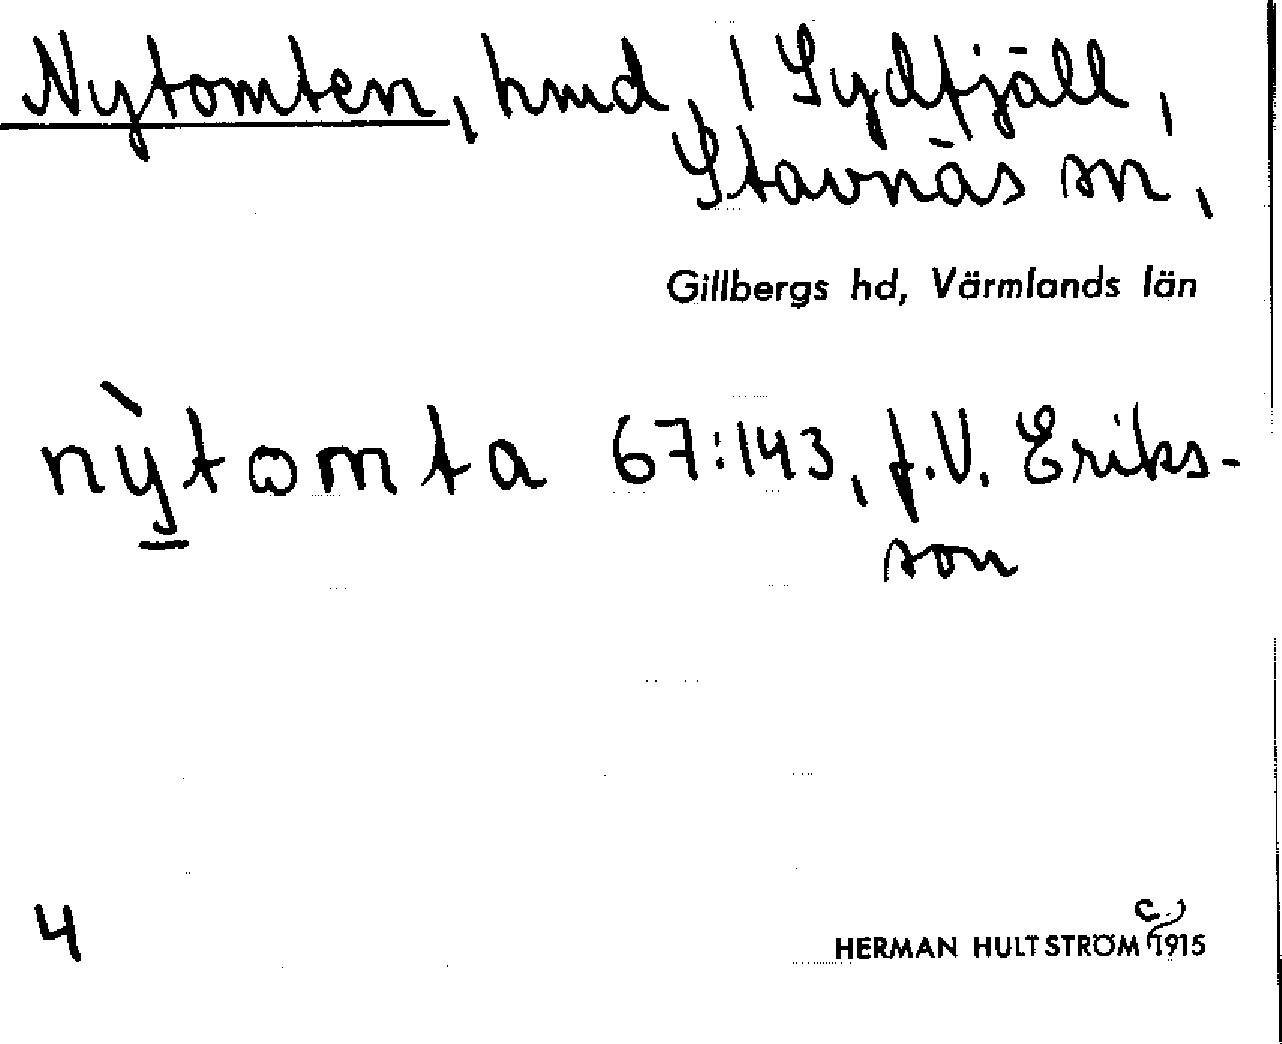 Nytomten, hmd, / Sydfjäll,
Stavnäs sn,
Gillbergs hd, Värmlands län
nỳtωmta 67:143, f.V. Eriks-
son
4
HERMAN HULTSTRÖM c. 1915